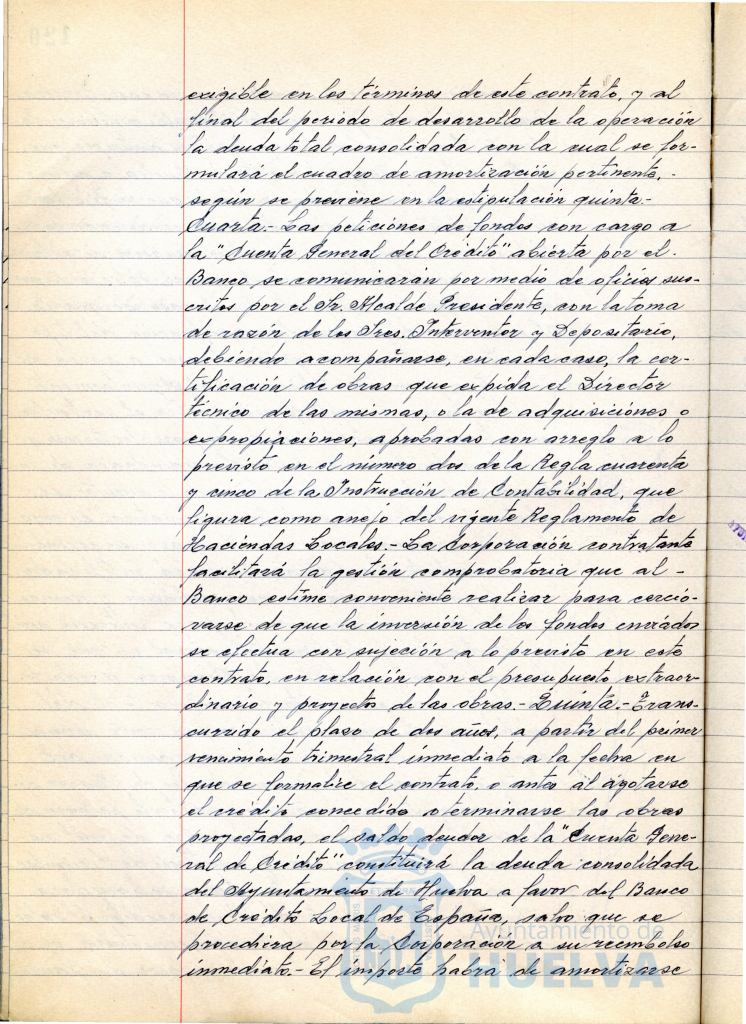 exigible en los términos de este contrato, y al
final del periodo de desarrollo de la operación
la deuda total consolidada con la cual se for-
mulará el cuadro de amortización pertinente,-
según se previene en la estipulación quinta.-
Cuarta.- Las peticiones de fondos con cargo a
la "Cuenta General del Crédito" abierta por el.
Banco se comunicarán por medio de oficios sus-
critos por el Sr. Alcalde Presidente, con la toma
de razón de los Sres. Interventor y Depositario,
debiendo acompañarse, en cada caso, la cer-
tificación de obras que expida el Director
técnico de las mismas, o la de adquisiciones o
expropiaciones, aprobadas con arreglo a lo
previsto en el número dos de la Regla cuarenta
y cinco de la Instrucción de Contabilidad, que
figura como anejo del vigente Reglamento de
Haciendas Locales.- La Corporación contratante
facilitará la gestión comprobatoria que al -
Banco estime conveniente realizar para cercio-
rarse de que la inversión de los fondos enviados
se efectua con sujeción a lo previsto en este
contrato, en relación con el presupuesto extraor-
dinario y proyectos de las obras.- Quinta.- Trans-
currido el plazo de dos años, a partir del primer
vencimiento trimestral inmediato a la fecha en
que se formalice el contrato, o antes al agotarse
el crédito concedido o terminarse las obras
proyectadas, el saldo deudor de la "Cuenta Gene-
ral de Crédito" constituirá la deuda consolidada
del Ayuntamiento de Huelva a favor del Banco
de Crédito Local de España, salvo que se
procediera por la Corporación a su reembolso
inmediato.- El importe habrá de amortizarse
Ayuntamiento de
HUELVA